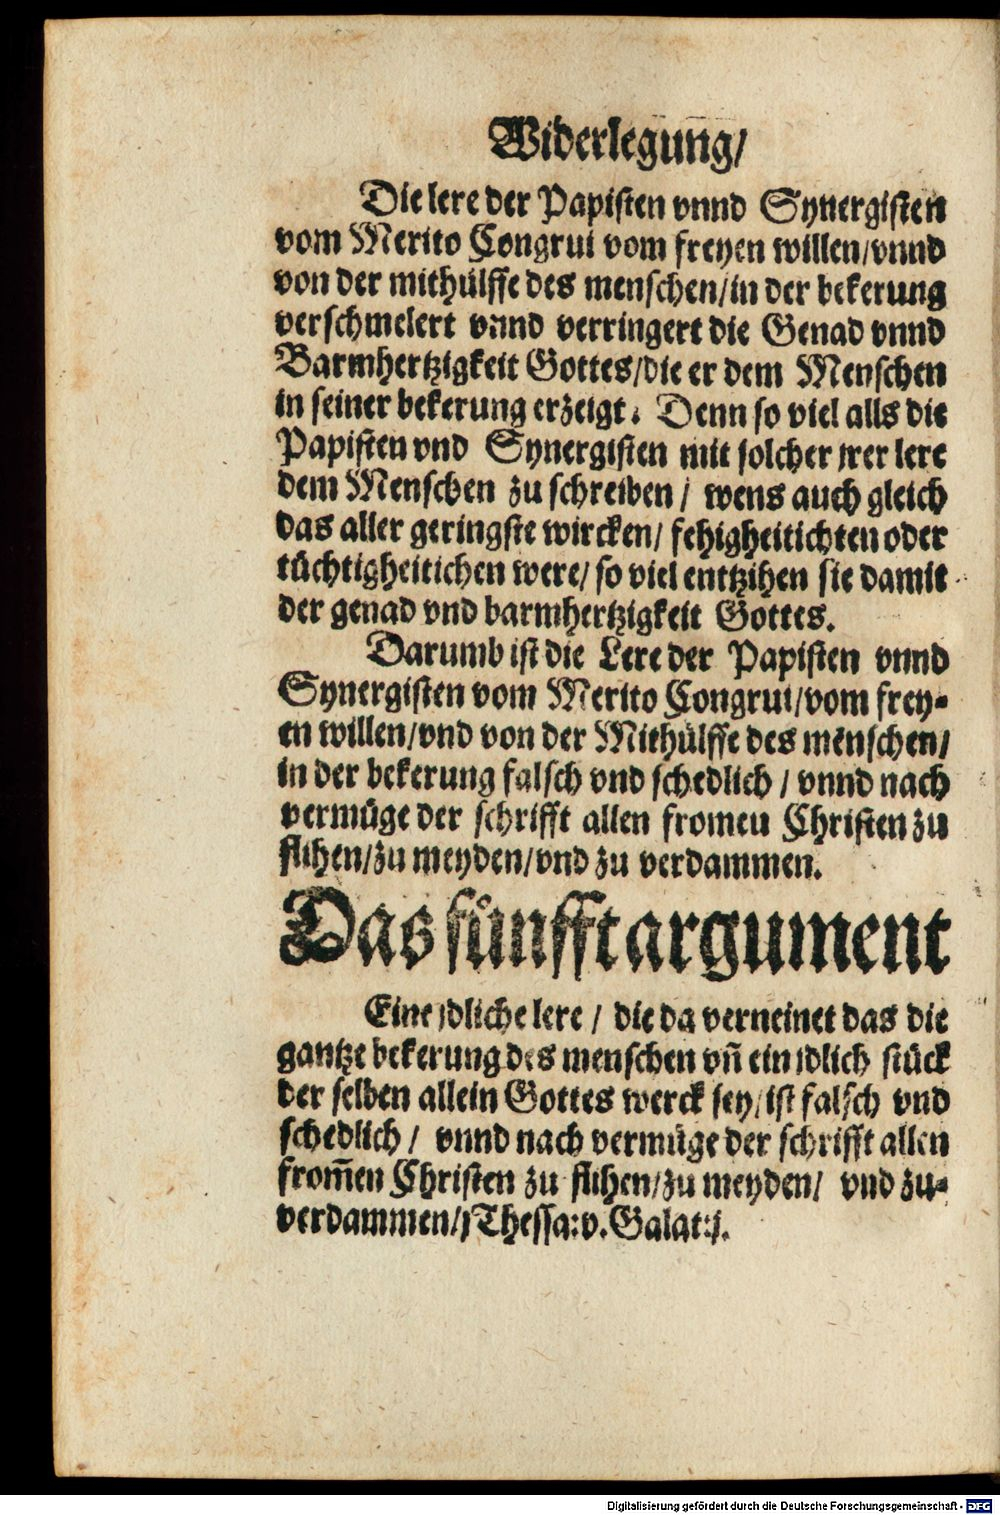 Widerlegung/
Die lere der Papisten vnnd Synergisten
vom Merito Congrui vom freyen willen/vnnd
von der mithülffe des menschen/in der bekerung
verschmelert vnnd verringert die Genad vnnd
Barmhertzigkeit Gottes/die er dem Menschen
in seiner bekerung erzeigt. Denn so viel alls die
Papisten vnd Synergisten mit solcher jrer lere
dem Menschen zu schreiben/ wens auch gleich
das aller geringste wircken/ fehigheitichten oder
tüchtigheitichen were/ so viel entzihen sie damit
der genad vnd barmhertzigkeit Gottes.
Darumb ist die Lere der Papisten vnnd
Synergisten vom Merito Congrui/vom frey-
en willen/vnd von der Mithülffe des menschen/
in der bekerung falsch vnd schedlich/ vnnd nach
vermüge der schrifft allen fromeu Christen zu
flihen/zu meyden/vnd zu verdammen.
Das fünfft argument
Eine jdliche lere/ die da verneinet das die
gantze bekerung des menschen vñ ein jdlich stück
der selben allein Gottes werck sey/ist falsch vnd
schedlich/ vnnd nach vermüge der schrifft allen
from̃en Christen zu flihen/zu meyden/ vnd zu-
verdammen/j Thessa:v. Galat:j.
Digitalisierung gefördert durch die Deutsche Forschungsgemeinschaft - DFG